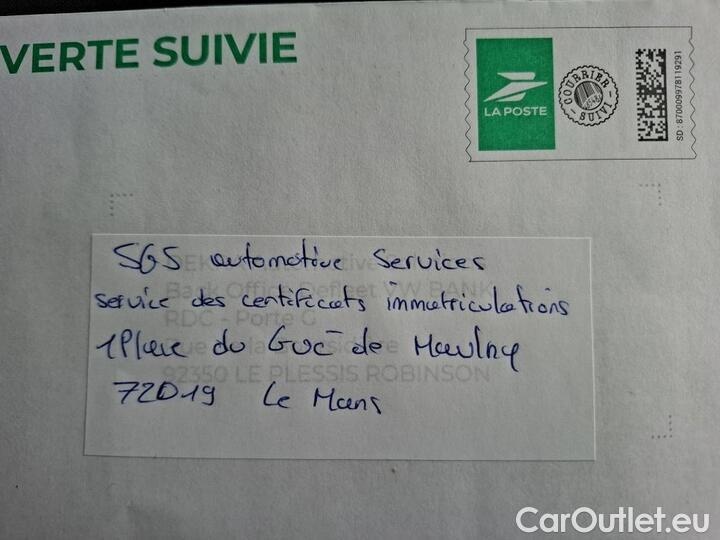 VERTE SUIVIE
LA POSTE
COURRIER SUIVI
SD : 870009978119291
SGS automotive Services
service des certificats immatriculations
1 Place du Gué de Maulny
72019 Le Mans
Bank Office Fleet VW BANK
RDC - Porte G
92350 LE PLESSIS ROBINSON
CarOutlet.eu